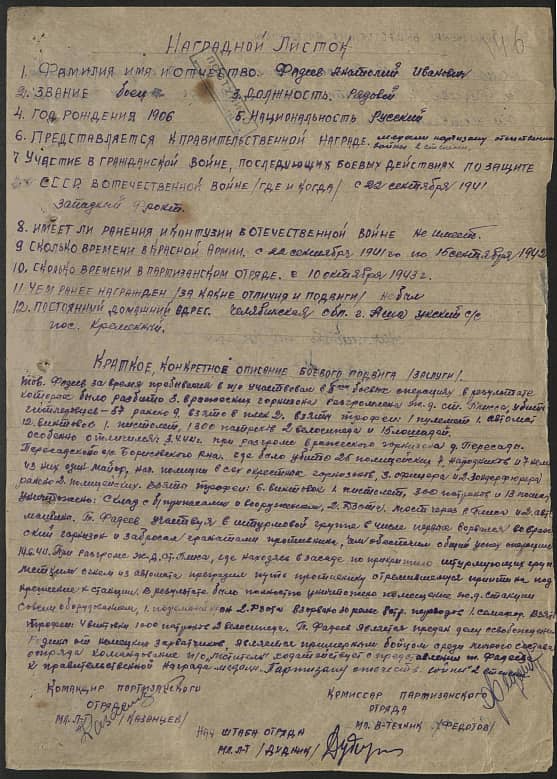 Наградной Листок
1. Фамилия имя и отчество. Фадеев Анатолий Иванович
2. Звание боец 3. Должность. Рядовой
4. Год рождения 1906 5. Национальность Русский
6. Представляется к правительственной награде. медали партизану отечественной
войны 2 степени.
7 Участие в гражданской войне, последующих боевых действиях по защите
СССР в отечественной войне /где и когда/ с 22 сентября 1941
Западный фронт.
8. Имеет ли ранения и контузии в отечественной войне не имеет.
9 Сколько времени в Красной Армии. с 22 сентября 1941 го по 15 сентября 1942
10. Сколько времени в партизанском отряде. с 10 октября 1943 г.
11 Чем ранее награжден /за какие отличия и подвиги/ не был
12. Постоянный домашний адрес. Челябинская обл. г. Аша с/с
пос.
Краткое, конкретное описание боевого подвига /заслуги/
тов. Фадеев за время пребывания в п/о участвовал в 8 боевых операциях в результате
которых было разбито 3. вражеских гарнизона разгромлена ж.д. ст. убито
гитлеровцев - 57 ранено 9. взято в плен 2. взяты трофеи 1 пулемет 1. автомат
12. винтовок 1. пистолет, 1300 патронов 2 велосипеда и 13 лошадей.
Особенно отличился 3.4.44 г. при разгроме вражеского гарнизона д. Пересады
Пересадского с/с Борисовского р-на. где было убито 26 полицейских и 7 немцев
из них один майор, нач. полиции всех окрестных гарнизонов, 3. офицера и 2
ранено 2. полицейских. Взяты трофеи: 6. винтовок 1. пистолет, 300 патронов и 13 лошадей
уничтожено: Склад с боеприпасами и вооружением, 2. дзота. мост через р. и 2. авто
машины. Т. Фадеев участвуя в штурмовой группе в числе первых ворвался во враже
ский гарнизон и забросал гранатами противника, чем обеспечил общий успех операции.
При разгроме ж.д. ст. где находясь в засаде по прикрытию штурмующих групп
метким огнем из автомата преградил путь противнику стремившемуся притти на под
крепление к станции. В результате было полностью уничтожено помещение ж.д. станции
со всем оборудованием, 2. дзота взорвано 1. семафор. Взяты
трофеи: 4 винтовки 1000 патронов 2 велосипеда. Т. Фадеев является предан делу освобождения
Родины от немецких захватчиков, является примерным бойцом среди личного состава
отряда командование п/о "Мститель" ходатайствует о представлении т. Фадеева
к правительственной награде медали. Партизану отечеств. войны 2 степени
Командир партизанского
отряда
мл. л-т /Казанцев/
Комиссар партизанского
отряда
мл. в-техник /Федотов/
Нач штаба отряда
мл. л-т /Дудник/